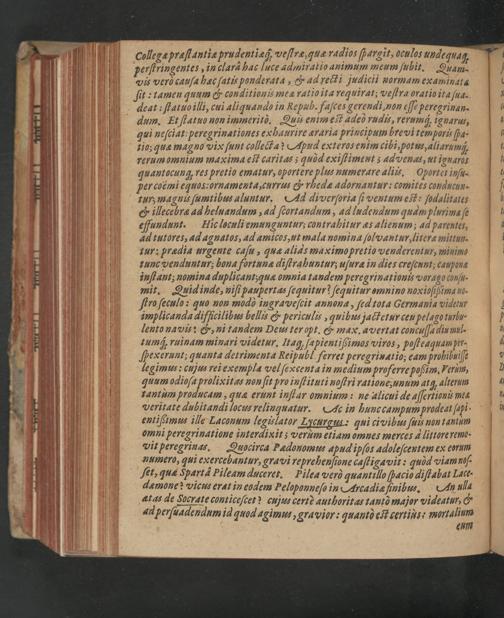 Collegæ præstantiæ prudentiæq́; vestræ, quæ radios spargit, oculos undequaq;
perstringentes, in clarâ hac luce admiratio animum meum subit. Quam-
vis verò causa hæc satis ponderata, & ad recti judicii normam examinata
sit: tamen quum & conditionis meæ ratio ita requirat; vestra oratio ita sua-
deat: statuo illi, cui aliquando in Repub. fasces gerendi, non esse peregrinan-
dum. Et statuo non immeritò. Quis enim est adeò rudis, rerumq́; ignarus,
qui nesciat: peregrinationes exhaurire æraria principum brevi temporis spa-
tio; quæ magno vix sunt collecta? Apud exteros enim cibi, potus, aliarumq́;
rerum omnium maxima est caritas; quòd existiment; advenas, ut ignaros
quantocunq; res pretio ematur, oportere plus numerare aliis. Oportet insu-
per coëmi equos: ornamenta, currus & rhedæ adornantur: comites conducun-
tur; magnis sumtibus aluntur. Ad diversoria si ventum est: sodalitates
& illecebræ ad heluandum, ad scortandum, ad ludendum quàm plurima se
effundunt. Hic loculi emunguntur; contrahitur æs alienum; ad parentes,
ad tutores, ad agnatos, ad amicos, ut mala nomina solvantur, literæ mittun-
tur; prædia urgente casu, quæ aliàs maximo pretio venderentur, minimo
tunc venduntur; bona fortunæ distrahuntur; usuræ in dies crescunt; caupona
instant; nomina duplicant; quæ omnia tandem peregrinationis vorago consu-
mit. Quid inde, nisi paupertas sequitur? sequitur omnino noxiosissima no-
stro seculo: quo non modò ingravescit annona, sed tota Germania videtur
implicanda difficilibus bellis & periculis, quibus jactetur ceu pelago turbu-
lento navis: &, ni tandem Deus ter opt. & max. avertat concussa diu mul-
tumq́; ruinam minari videtur. Itaq; sapientissimos viros, posteaquam per-
spexerunt; quanta detrimenta Reipubl. ferret peregrinatio; eam prohibuisse
legimus: cujus rei exempla vel sexcenta in medium proferre possim. Verùm,
quum odiosa prolixitas non sit pro instituti nostri ratione, unum atq; alterum
tantùm producam, quæ erunt instar omnium: ne alicui de assertionis meæ
veritate dubitandi locus relinquatur. Ac in hunc campum prodeat sapi-
entissimus ille Laconum legislator Lycurgus: qui civibus suis non tantum
omni peregrinatione interdixit; verùm etiam omnes merces à littore remo-
vit peregrinas. Quocirca Pædonomus apud ipsos adolescentem ex eorum
numero, qui exercebantur, gravi reprehensione castigavit: quòd viam nos-
set, quæ Spartâ Pileam duceret. Pilea verò quantillo spacio distabat Lace-
dæmone? vicus erat in eodem Peloponneso in Arcadiæ finibus. An ulla
ætas de Socrate conticescet? cujus certè authoritas tantò major videatur, &
ad persuadendum id quod agimus, gravior: quantò est certius: mortalium
eum